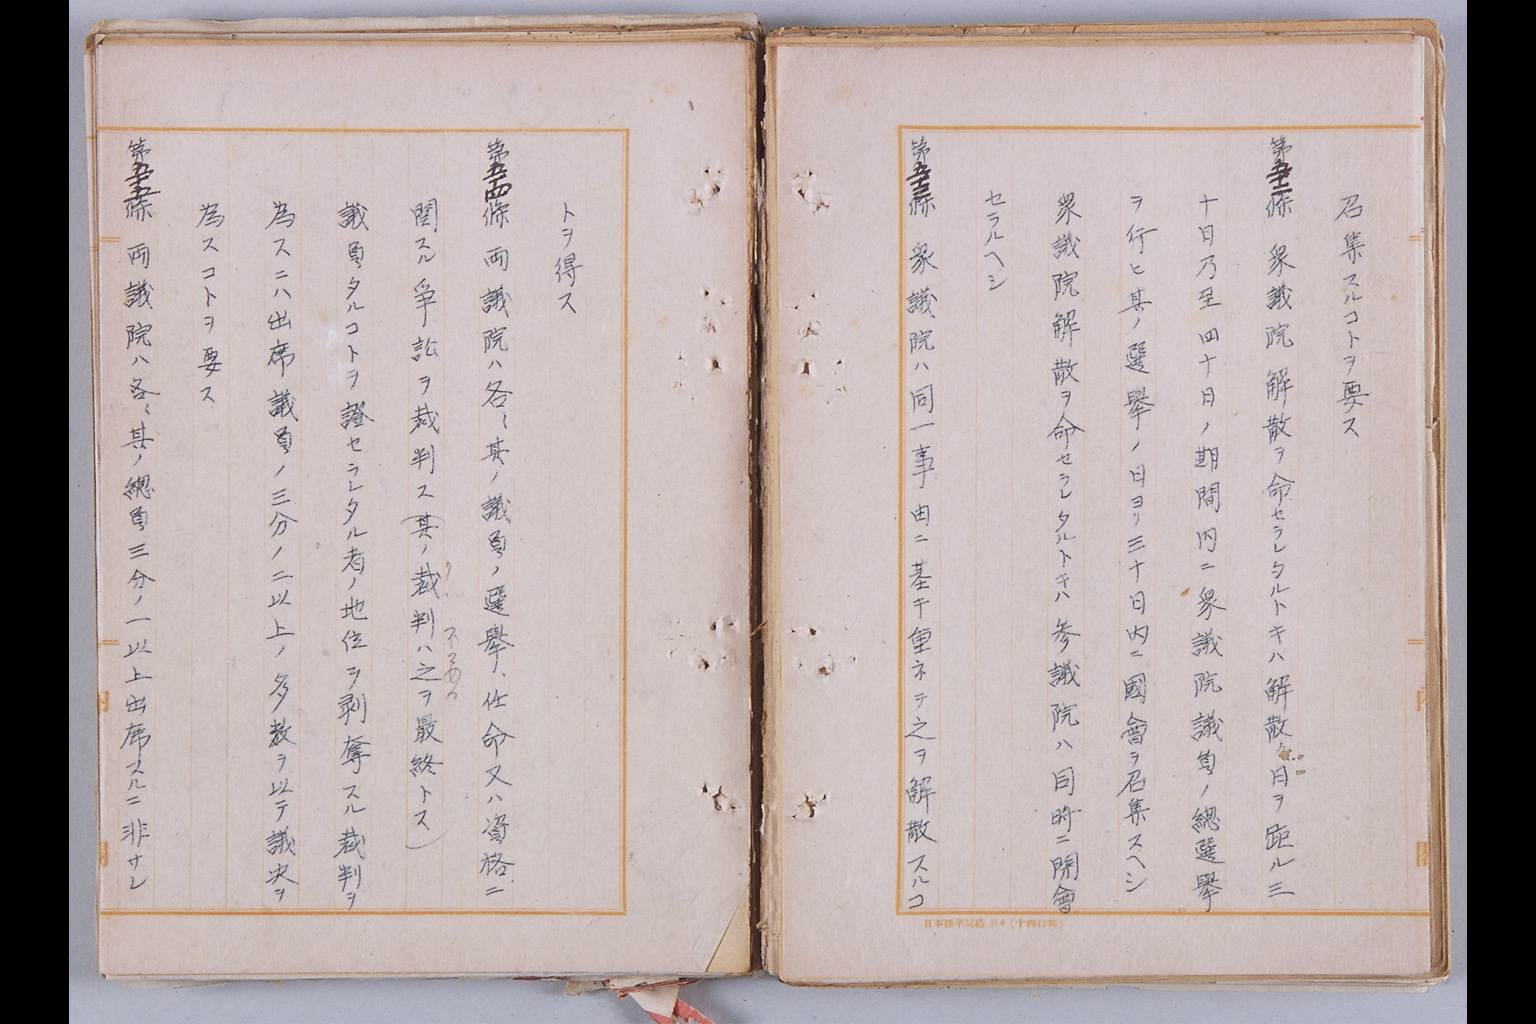 召集スルコトヲ要ス
第五十二條 衆議院解散ヲ命セラレタルトキハ解散ノ日ヲ距ル三
十日乃至四十日ノ期間内ニ衆議院議員ノ總選擧
ヲ行ヒ其ノ選擧ノ日ヨリ三十日内ニ國會ヲ召集スヘシ
衆議院解散ヲ命セラレタルトキハ參議院ハ同時ニ閉會
セラルヘシ
第五十三條 衆議院ハ同一事由ニ基キ重ネテ之ヲ解散スルコ
日本標準規格 B4(十四行罫)
トヲ得ス
第五十四條 兩議院ハ各〻其ノ議員ノ選擧、任命又ハ資格ニ
関スル爭訟ヲ裁判ス(其ノ裁判ハ之ヲ最終トス)
議員タルコトヲ證セラレタル者ノ地位ヲ剥奪スル裁判ヲ
為スニハ出席議員ノ三分ノ二以上ノ多数ヲ以テ議決ヲ
為スコトヲ要ス
第五十五條 兩議院ハ各〻其ノ總員三分ノ一以上出席スルニ非サレ